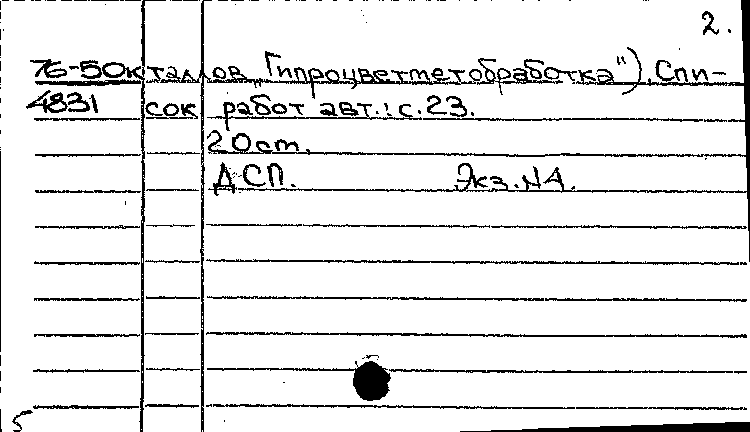 2.
76-50к таллов „Гипроцветметобработка"). Спи-
4831 сок работ авт.: с.23.
20 ст.
ДСП. Экз. N4.
5